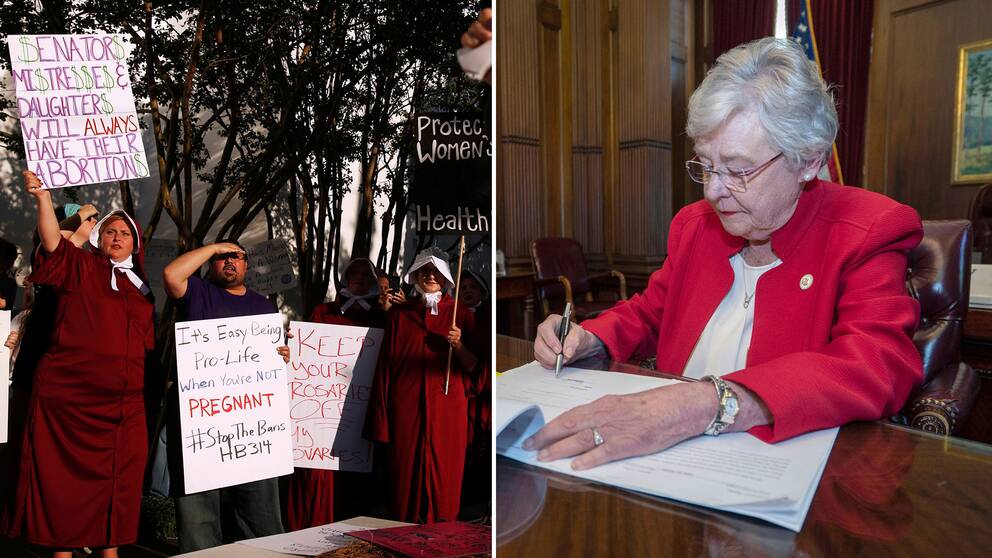 $ENATOR$
MI$TRE$$E$ &
DAUGHTER$
WILL ALWAYS
HAVE THEIR
ABORTION$
Protect
Women's
Health
It's Easy Being
Pro-Life
When You're NOT
PREGNANT
#StopTheBans
HB314
KEEP
YOUR
ROSARIES
OFF
My
OVARIES!